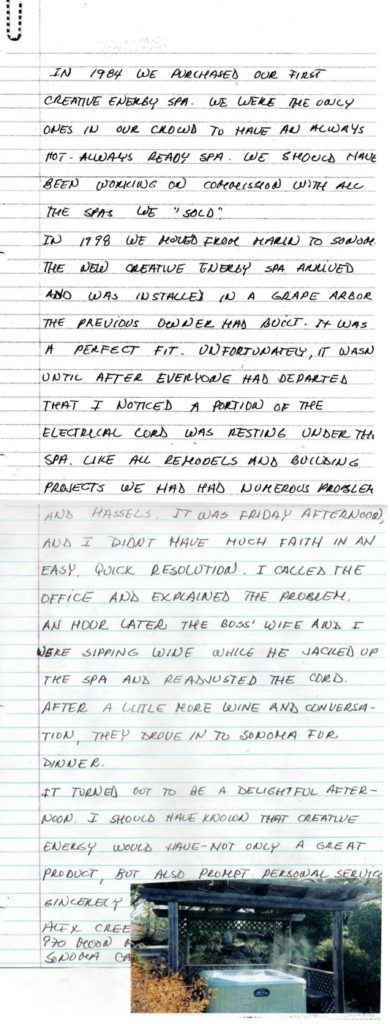 IN 1984 WE PURCHASED OUR FIRST
CREATIVE ENERGY SPA. WE WERE THE ONLY
ONES IN OUR CROWD TO HAVE AN ALWAYS
HOT - ALWAYS READY SPA. WE SHOULD HAVE
BEEN WORKING ON COMMISSION WITH ALL
THE SPAS WE "SOLD".
IN 1998 WE MOVED FROM MARIN TO SONOM
THE NEW CREATIVE ENERGY SPA ARRIVED
AND WAS INSTALLED IN A GRAPE ARBOR
THE PREVIOUS OWNER HAD BUILT. IT WAS
A PERFECT FIT. UNFORTUNATELY, IT WASN
UNTIL AFTER EVERYONE HAD DEPARTED
THAT I NOTICED A PORTION OF THE
ELECTRICAL CORD WAS RESTING UNDER THE
SPA. LIKE ALL REMODELS AND BUILDING
PROJECTS WE HAD HAD NUMEROUS PROBLEM
AND HASSELS. IT WAS FRIDAY AFTERNOON
AND I DIDNT HAVE MUCH FAITH IN AN
EASY, QUICK RESOLUTION. I CALLED THE
OFFICE AND EXPLAINED THE PROBLEM.
AN HOUR LATER THE BOSS' WIFE AND I
WERE SIPPING WINE WHILE HE JACKED UP
THE SPA AND READJUSTED THE CORD.
AFTER A LITTLE MORE WINE AND CONVERSA-
TION, THEY DROVE IN TO SONOMA FOR
DINNER.
IT TURNED OUT TO BE A DELIGHTFUL AFTER-
NOON. I SHOULD HAVE KNOWN THAT CREATIVE
ENERGY WOULD HAVE - NOT ONLY A GREAT
PRODUCT, BUT ALSO PROMPT PERSONAL SERVIC
SINCERELY
ALEX CREE
970
SONOMA CA